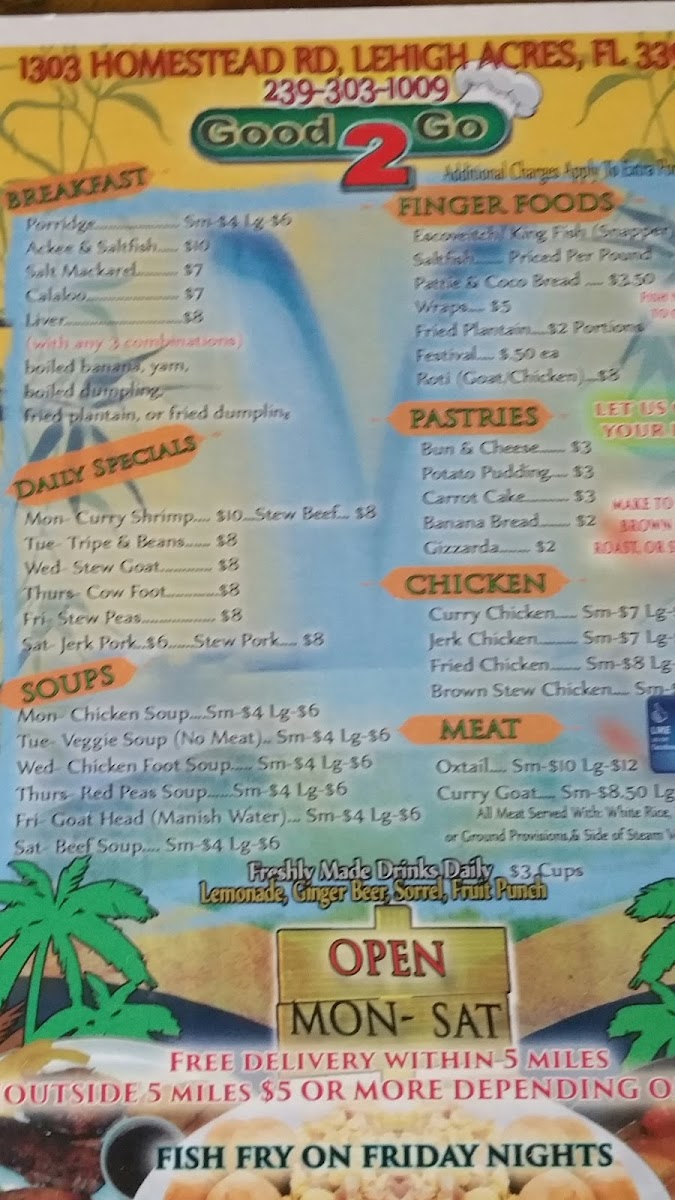 1303 HOMESTEAD RD, LEHIGH ACRES, FL 339
239-303-1009
Good 2 Go
Additional Charges Apply To Extra
BREAKFAST
Porridge..................... Sm-$4 Lg-$6
Ackee & Saltfish..... $10
Salt Mackarel.......... $7
Calaloo...................... $7
Liver...........................$8
(with any 3 combinations)
boiled banana, yam,
boiled dumpling,
fried plantain, or fried dumpling
DAILY SPECIALS
Mon- Curry Shrimp.... $10...Stew Beef... $8
Tue- Tripe & Beans...... $8
Wed- Stew Goat............ $8
Thurs- Cow Foot............$8
Fri- Stew Peas................. $8
Sat- Jerk Pork..$6......Stew Pork.... $8
SOUPS
Mon- Chicken Soup....Sm-$4 Lg-$6
Tue- Veggie Soup (No Meat).. Sm-$4 Lg-$6
Wed- Chicken Foot Soup..... Sm-$4 Lg-$6
Thurs- Red Peas Soup......Sm-$4 Lg-$6
Fri- Goat Head (Manish Water)... Sm-$4 Lg-$6
Sat- Beef Soup.... Sm-$4 Lg-$6
FINGER FOODS
Escoveitch/ King Fish (Snapper)
Saltfish...... Priced Per Pound
Pattie & Coco Bread .... $3.50
Wraps.... $5
Fried Plantain....$2 Portions
Festival.... $.50 ea
Roti (Goat/Chicken)...$8
PASTRIES
Bun & Cheese...... $3
Potato Pudding.... $3
Carrot Cake........... $3
Banana Bread....... $2
Gizzarda....... $2
LET US
YOUR
MAKE TO
BROWN
ROAST, OR S
CHICKEN
Curry Chicken..... Sm-$7 Lg-
Jerk Chicken......... Sm-$7 Lg-
Fried Chicken....... Sm-$8 Lg-
Brown Stew Chicken.... Sm-
MEAT
Oxtail.... Sm-$10 Lg-$12
Curry Goat.... Sm-$8.50 Lg
All Meat Served With: White Rice,
or Ground Provisions,& Side of Steam
Freshly Made Drinks Daily $3 Cups
Lemonade, Ginger Beer, Sorrel, Fruit Punch
OPEN
MON- SAT
FREE DELIVERY WITHIN 5 MILES
OUTSIDE 5 MILES $5 OR MORE DEPENDING O
FISH FRY ON FRIDAY NIGHTS